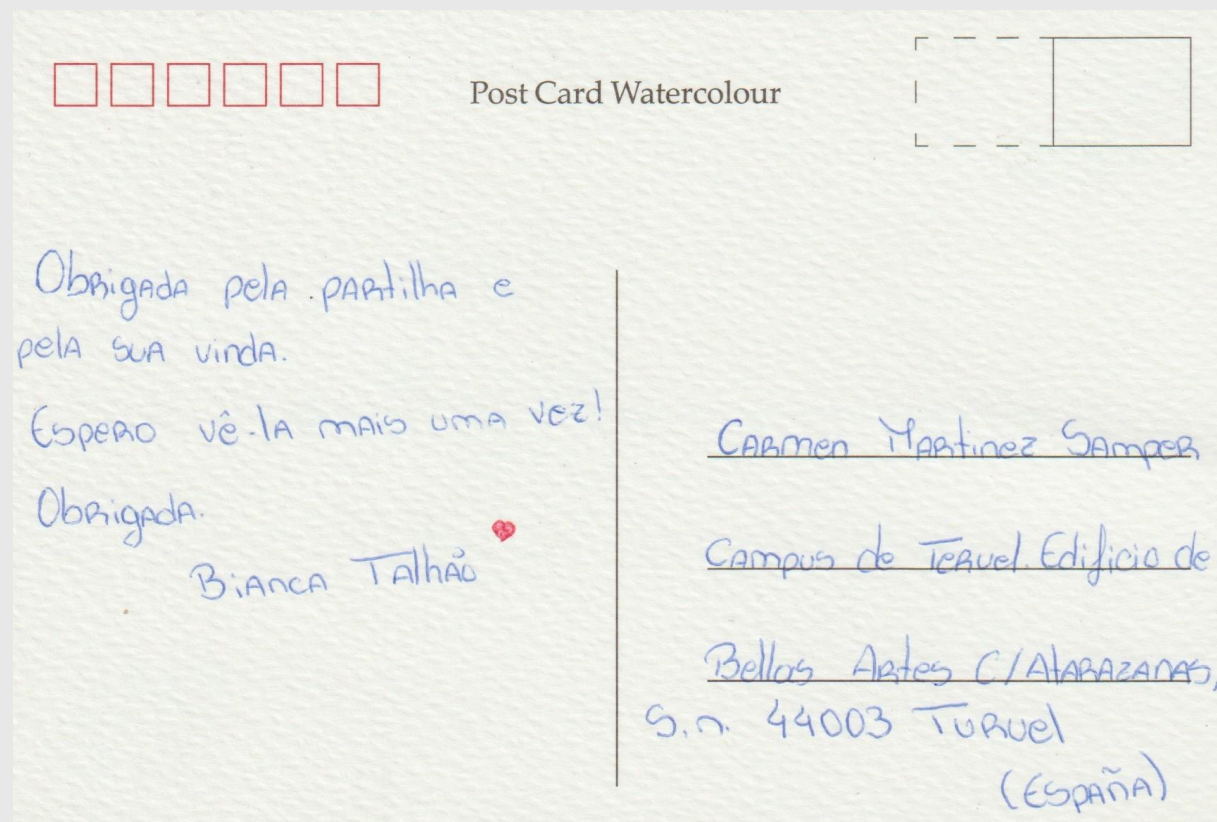 Post Card Watercolour
Obrigada pela partilha e
pela sua vinda.
Espero vê-la mais uma vez!
Obrigada.
Bianca Talhão
Carmen Martinez Samper
Campus de Teruel. Edificio de
Bellas Artes C/Atarazanas,
S.n. 44003 Turuel
(España)